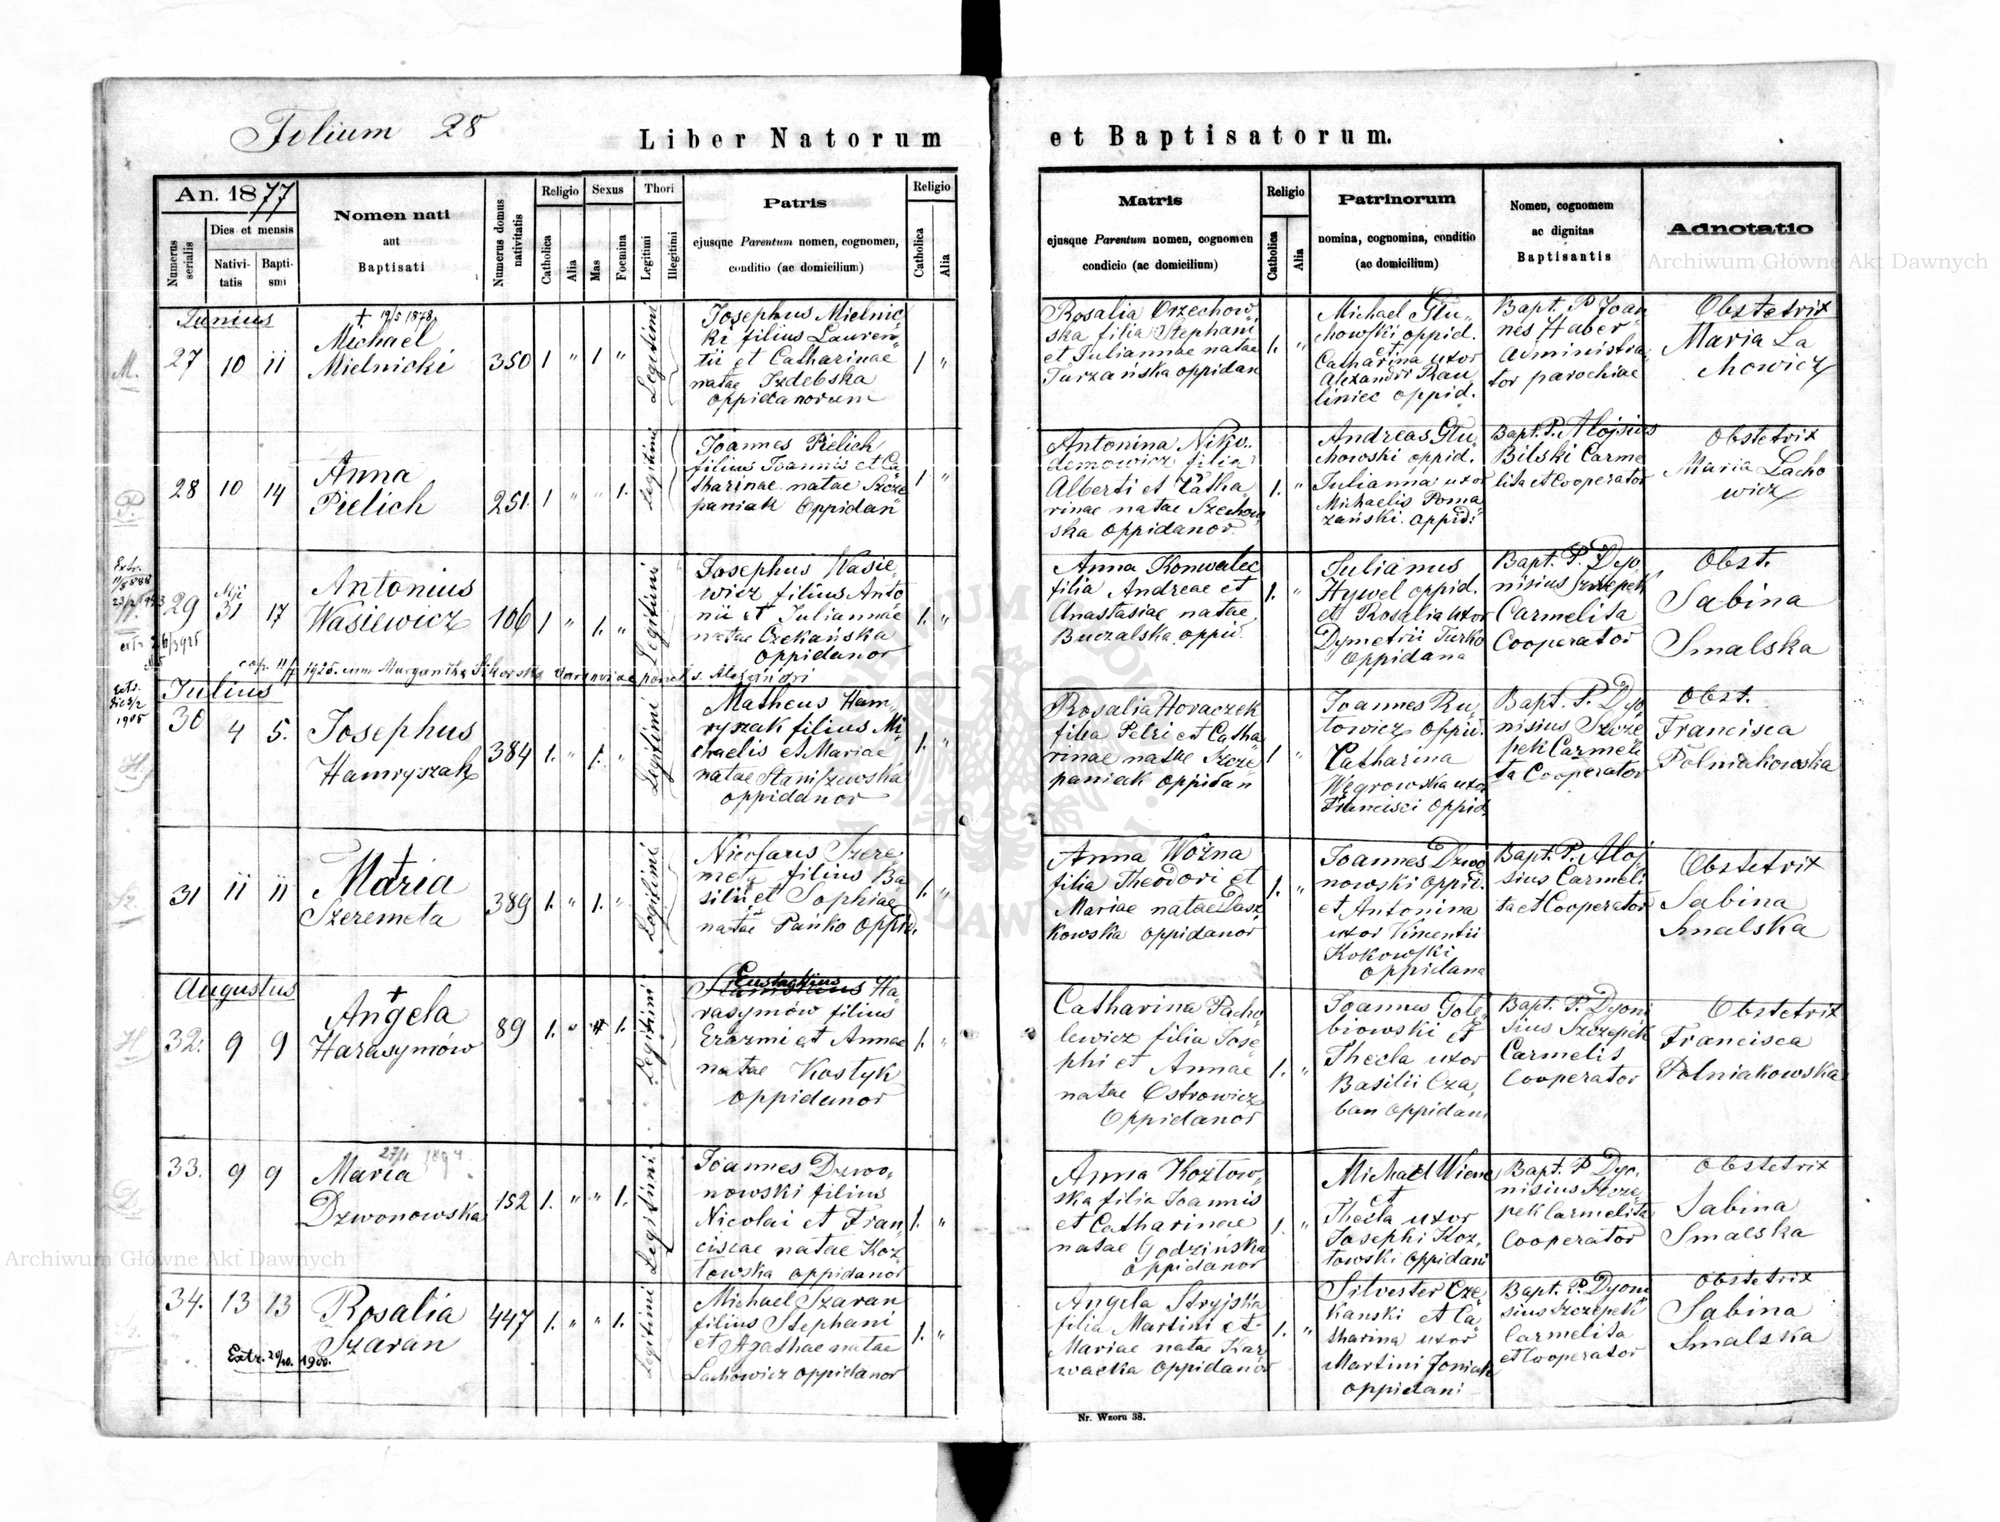 Folium 28
Liber Natorum et Baptisatorum.
An. 1877
Numerus serialis
Dies et mensis
Nativi-
tatis
Bapti-
smi
Nomen nati
aut
Baptisati
Numerus domus nativitatis
Religio
Catholica
Alia
Sexus
Mas
Foemina
Thori
Legitimi
Illegitimi
Patris
ejusque Parentum nomen, cognomen,
conditio (ac domicilium)
Religio
Catholica
Alia
Matris
ejusque Parentum nomen, cognomen
condicio (ac domicilium)
Religio
Catholica
Alia
Patrinorum
nomina, cognomina, conditio
(ac domicilium)
Nomen, cognomen
ac dignitas
Baptisantis
Adnotatio
Archiwum Główne Akt Dawnych
M.
Junius
27 10 11
+ 19/5 1878
Michael
Mielnicki
350 1 " 1 "
Legitimi
Josephus Mielnic
ki filius Lauren
tii et Catharinae
natae Izdebska
oppidanorum
1 "
Rosalia Orzechow
ska filia Stephani
et Juliannae natae
Turzańska oppidan
1. "
Michael Glu
chowski oppid.
et
Catharina uxor
Alexandri Rau
liniec oppid.
Bapt. P. Joan
nes Haber
Administra
tor parochiae
Obstetrix
Maria La
chowicz
P.
28 10 14
Anna
Pielich
251. 1 " " 1.
Legitimi
Joannes Pielich
filius Joannis et Ca
tharinae natae Szcze
paniak Oppidan
1 "
Antonina Niko
demowicz filia
Alberti et Catha
rinae natae Szechow
ska oppidanor
1. "
Andreas Glu
chowski oppid.
Julianna uxor
Michaelis Poma
zański. oppid:
Bapt. P. Alojsius
Bilski Carme
lita et Cooperator
Obstetrix
Maria Lacho
wicz
Extr.
29 Mji 31 17
Antonius
Wasiewicz
106 1 " 1. "
Legitimi
Josephus Wasie
wicz filius Anto
nii et Juliannae
natae Czekańska
oppidanor
1. "
Anna Konwalec
filia Andreae et
Anastasiae natae
Buczalska oppid.
1. "
Julianus
Hywel oppid.
et Rosalia uxor
Dymetrii Turko
Oppidana
Bapt. P. Dyo
nisius Szczepek
Carmelita
Cooperator
Obst.
Sabina
Smalska
cop. 11/7 1925. cum Margaritha Sikorska Varsoviae paroch. s. Alexandri
Extr.
1905
H.
Julius
30 4 5.
Josephus
Hamryszak
384 1. " 1. "
Legitimi
Matheus Ham
ryszak filius Mi
chaelis et Mariae
natae Staniszewska
oppidanor
1. "
Rosalia Horaczek
filia Petri et Catha
rinae natae Szcze
paniak oppidan
1 "
Joannes Ru
towicz oppid.
Catharina
Węgrowska uxor
Francisci oppid.
Bapt. P. Dyo
nisius Szcze
pek Carmeli
ta Cooperator
Obst.
Francisca
Polniakowska
Sz.
31 11 11
+
Maria
Szeremeta
389 1. " 1. "
Legitimi
Nicolaus Szere
meta filius Ba
silii et Sophiae
natae Pańko oppid.
1. "
Anna Woźna
filia Theodori et
Mariae natae Dasz
kowska oppidanor
1. "
Joannes Dzwo
nowski oppid.
et Antonina
uxor Vincentii
Kokowski
oppidana
Bapt. P. Aloj
sius Carmeli
ta et Cooperator
Obstetrix
Sabina
Smalska
H.
Augustus
32. 9 9
+
Angela
Harasymów
89 1. " 1.
Legitimi
Eustachius
Ha
rasymów filius
Erazmi et Annae
natae Kostyk
oppidanor
1. "
Catharina Pacho
lewicz filia Jose
phi et Annae
natae Ostrowicz
Oppidanor
1. "
Joannes Gole
biowski et
Thecla uxor
Basilii Cza
ban oppidani
Bapt. P. Dyoni
sius Szczepek
Carmelis
Cooperator
Obstetrix
Francisca
Polniakowska
D.
33. 9 9
27/1 1894
Maria
Dzwonowska
152 1. " " 1.
Legitimi
Joannes Dzwo
nowski filius
Nicolai et Fran
ciscae natae Koz
łowska oppidanor
1. "
Anna Kozłow
ska filia Joannis
et Catharinae
natae Godzińska
oppidanor
1. "
Michael
et
Thecla uxor
Josephi Koz
łowski oppidani
Bapt. P. Dyo
nisius Szcze
pek Carmelita
Cooperator
Obstetrix
Sabina
Smalska
Archiwum Główne Akt Dawnych
34. 13 13
Rosalia
Szaran
Extr. 20/10. 1900.
447 1. " " 1.
Legitimi
Michael Szaran
filius Stephani
et Agathae natae
Lachowicz oppidanor
1. "
Angela Stryjska
filia Martini et
Mariae natae Kar
wacka Oppidanor
1. "
Silvester Cze
kanski et Ca
tharina uxor
Martini Joniak
oppidani
Bapt. P. Dyoni
sius Szczepek
Carmelita
et Cooperator
Obstetrix
Sabina
Smalska
Nr. Wzoru 38.